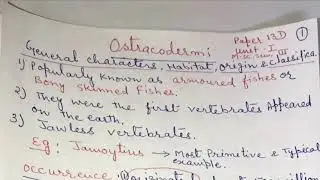 Ostracodermi
Paper 13D
Unit - I
M.Sc. Sem. III
①
General characters, Habitat, Origin & Classifica
1) Popularly known as armoured fishes or
Bony skinned fishes.
2) They were the first vertebrates appeared
on the earth.
3) Jawless vertebrates.
Eg: Jamoytius → Most Primitive & Typical
example.
Occurrence: